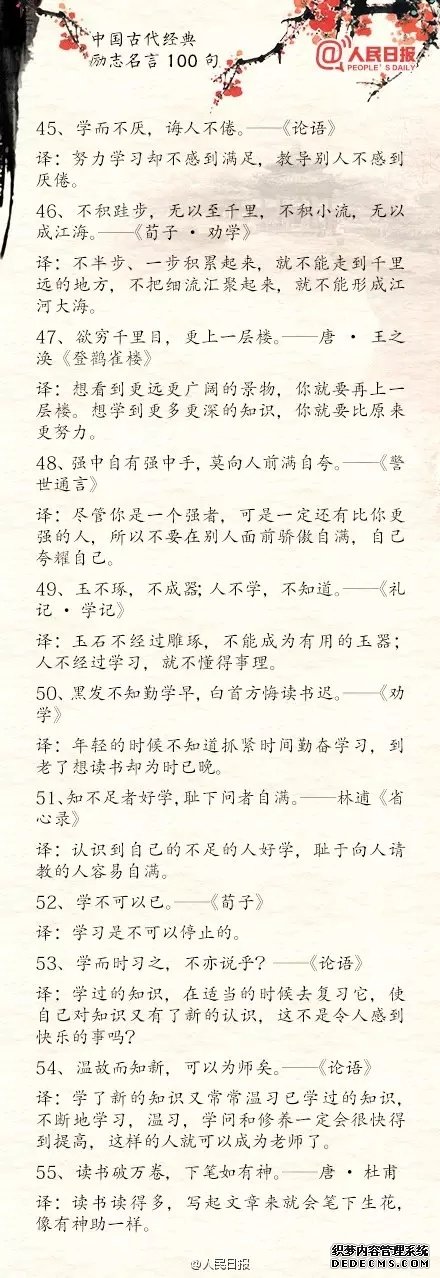 中国古代经典
励志名言100句
@人民日报
PEOPLE'S DAILY
45、学而不厌，诲人不倦。——《论语》
译：努力学习却不感到满足，教导别人不感到
厌倦。
46、不积跬步，无以至千里，不积小流，无以
成江海。——《荀子·劝学》
译：不半步、一步积累起来，就不能走到千里
远的地方，不把细流汇聚起来，就不能形成江
河大海。
47、欲穷千里目，更上一层楼。——唐·王之
涣《登鹳雀楼》
译：想看到更远更广阔的景物，你就要再上一
层楼。想学到更多更深的知识，你就要比原来
更努力。
48、强中自有强中手，莫向人前满自夸。——《警
世通言》
译：尽管你是一个强者，可是一定还有比你更
强的人，所以不要在别人面前骄傲自满，自己
夸耀自己。
49、玉不琢，不成器；人不学，不知道。——《礼
记·学记》
译：玉石不经过雕琢，不能成为有用的玉器；
人不经过学习，就不懂得事理。
50、黑发不知勤学早，白首方悔读书迟。——《劝
学》
译：年轻的时候不知道抓紧时间勤奋学习，到
老了想读书却为时已晚。
51、知不足者好学，耻下问者自满。——林逋《省
心录》
译：认识到自己的不足的人好学，耻于向人请
教的人容易自满。
52、学不可以已。——《荀子》
译：学习是不可以停止的。
53、学而时习之，不亦说乎？——《论语》
译：学过的知识，在适当的时候去复习它，使
自己对知识又有了新的认识，这不是令人感到
快乐的事吗？
54、温故而知新，可以为师矣。——《论语》
译：学了新的知识又常常温习已学过的知识，
不断地学习，温习，学问和修养一定会很快得
到提高，这样的人就可以成为老师了。
55、读书破万卷，下笔如有神。——唐·杜甫
译：读书读得多，写起文章来就会笔下生花，
像有神助一样。
@人民日报
织梦内容管理系统
DEDECMS.COM